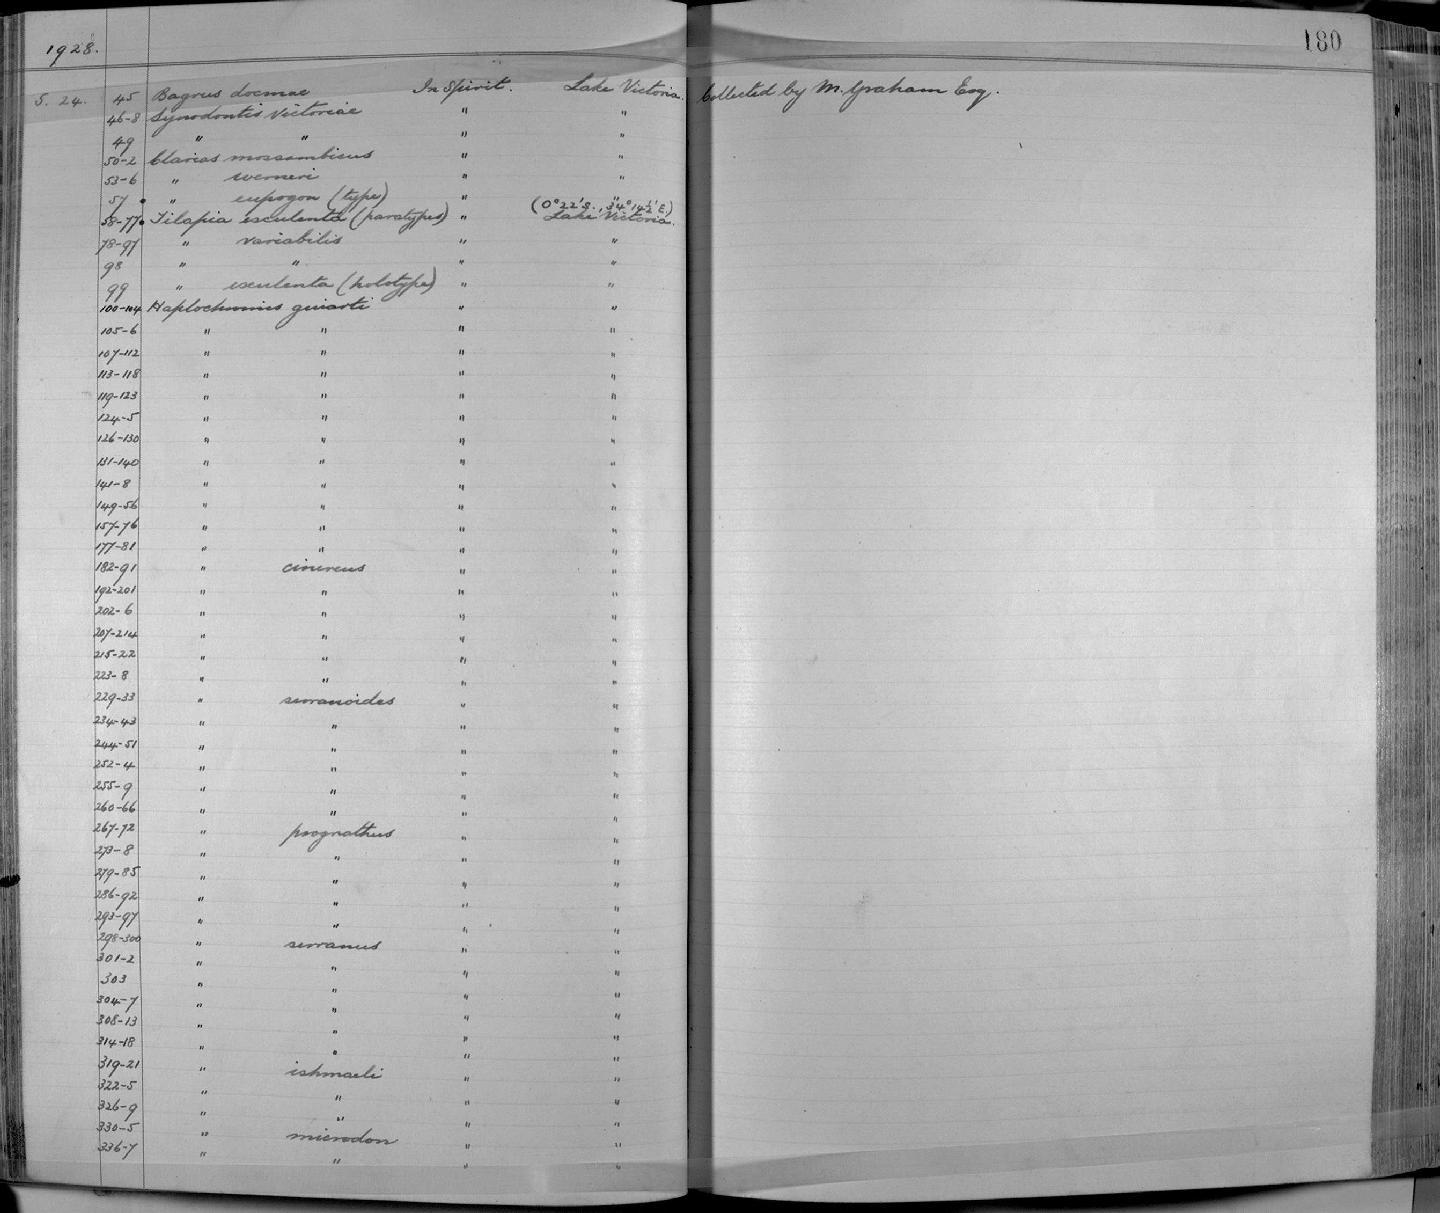 1928.
180
5. 24. 45 Bagrus docmac In Spirit. Lake Victoria. Collected by M. Graham Esq.
46-8 Synodontis victoriae " "
49 " " " "
50-2 Clarias mossambicus " "
53-6 " werneri " "
57 " eupogon (type) " "
(0° 22' S., 34° 14½' E)
58-77 Tilapia esculenta (paratypes) " Lake Victoria.
78-97 " variabilis " "
98 " " " "
99 " esculenta (holotype) " "
100-104 Haplochromis guiarti " "
105-6 " " " "
107-112 " " " "
113-118 " " " "
119-123 " " " "
124-5 " " " "
126-130 " " " "
131-140 " " " "
141-8 " " " "
149-56 " " " "
157-76 " " " "
177-81 " " " "
182-91 " cinereus " "
192-201 " " " "
202-6 " " " "
207-214 " " " "
215-22 " " " "
223-8 " " " "
229-33 " serranoides " "
234-43 " " " "
244-51 " " " "
252-4 " " " "
255-9 " " " "
260-66 " " " "
267-72 " prognathus " "
273-8 " " " "
279-85 " " " "
286-92 " " " "
293-97 " " " "
298-300 " serranus " "
301-2 " " " "
303 " " " "
304-7 " " " "
308-13 " " " "
314-18 " " " "
319-21 " ishmaeli " "
322-5 " " " "
326-9 " " " "
330-5 " microdon " "
336-7 " " " "